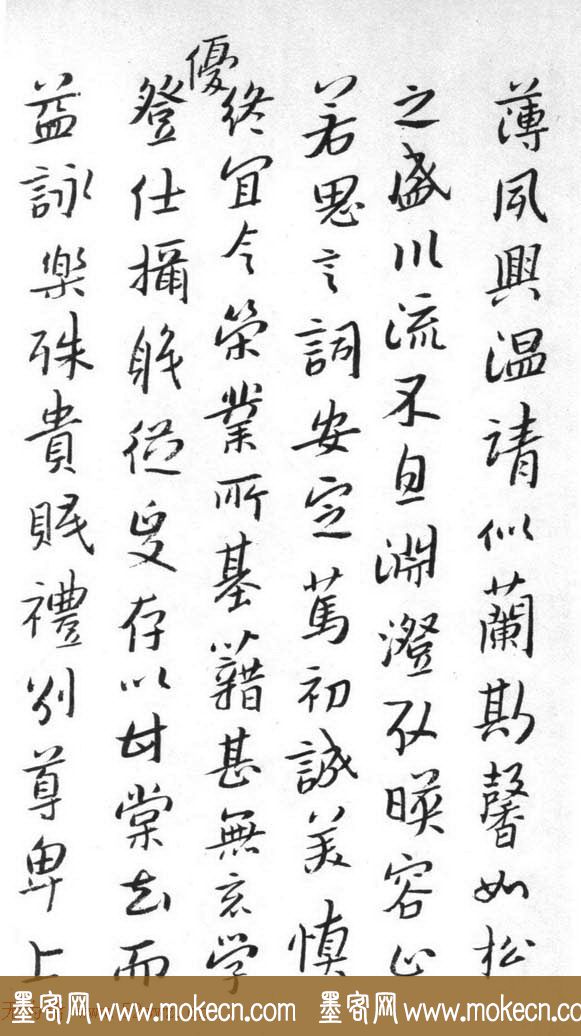 薄夙興温清似蘭斯馨如松
之盛川流不息淵澄取暎容止
若思言詞安定萬初誠美慎
終宜令榮業所基藉甚無竟学
優
登仕攝職從政存以甘棠去而
益詠樂殊貴賤禮別尊卑上
墨客网 www.mokecn.com 墨客网 www.mokecn.com